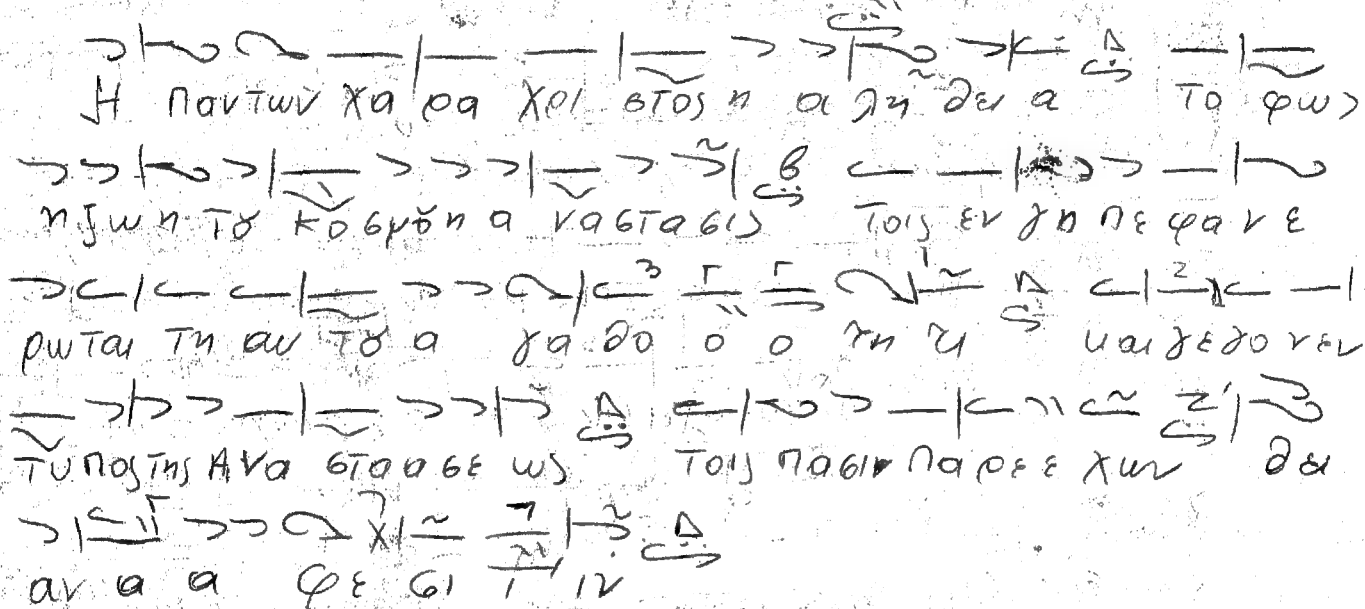 Η παντων χα ρα χρι στος η α λη θει α το φως
η ζωη τȣ κο σμȣ η α να στα σις τοις εν γη πε φα νε
ρωται τη αυ τȣ α γα θο ο ο τη τι και γε γο νεν
τυ πος της Ανα στα α σε ως τοις πασιν πα ρε ε χων θει
αν α α φε σι ι ιν